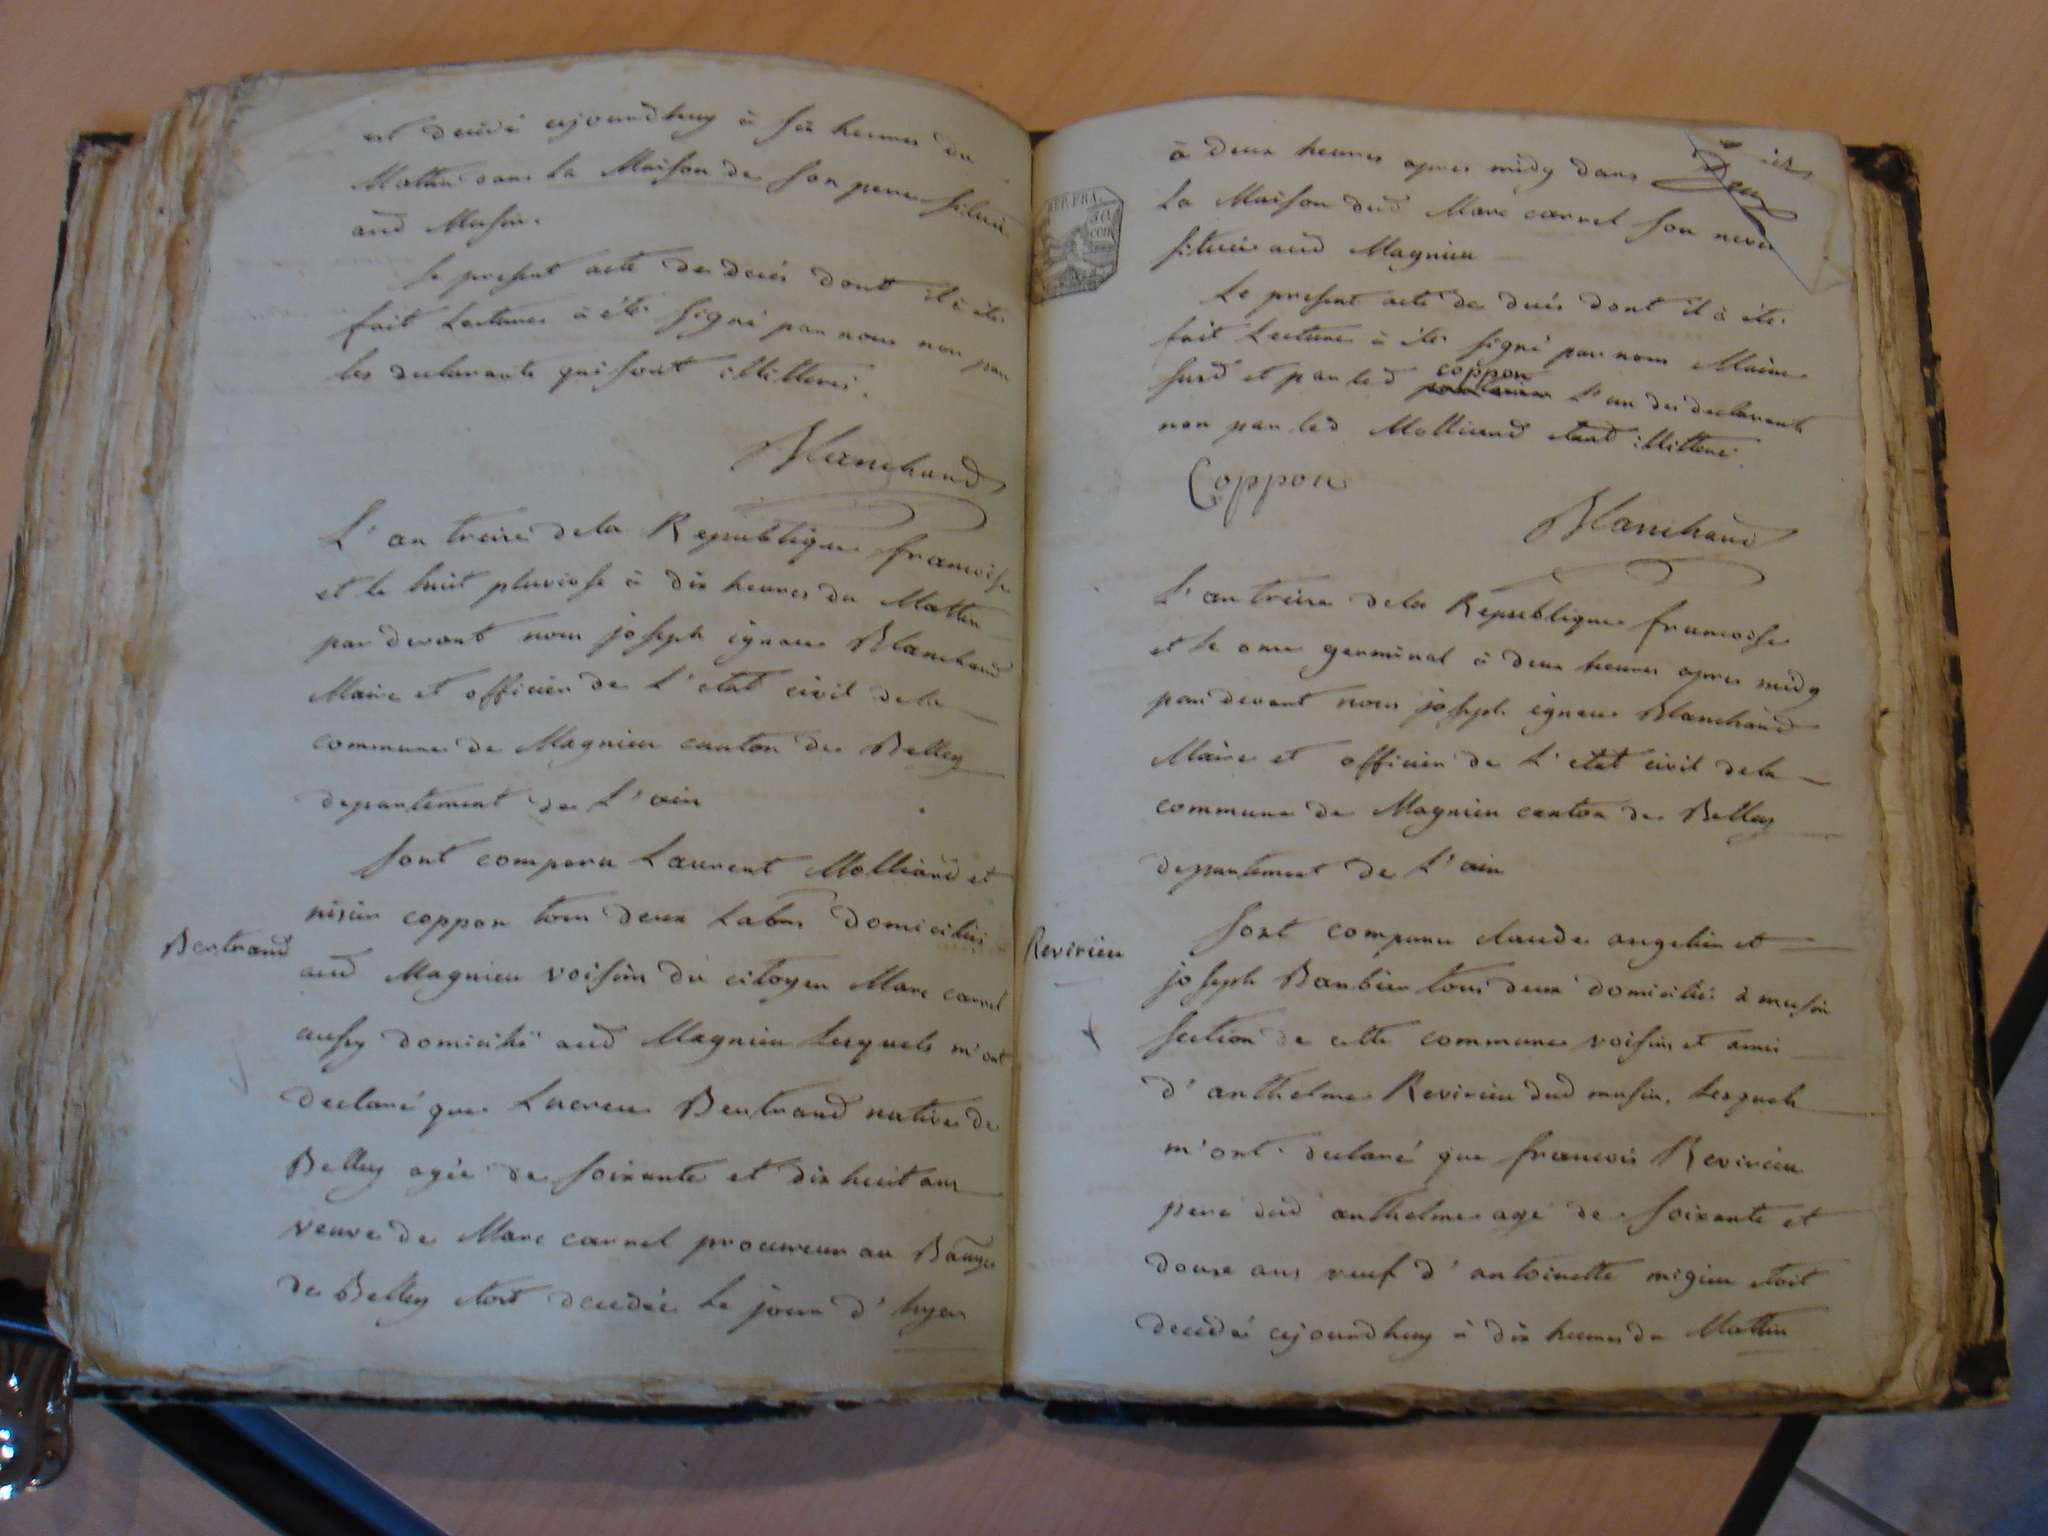 est decédé aujourdhuy à six heures du
Mattin dans la Maison de son pere située
aud Musin.
Le present acte de decés dont il à été
fait Lecture à été signé par nous non par
les declarants qui sont illitterés.
Blanchard
L'an treize de la Republique francoise
et le huit pluviose à dix heures du Mattin
par devant nous joseph ignace Blanchard
Maire et officier de L'etat civil de la
commune de Magnieu canton de Belley
departement de L'ain
Sont comparu Laurent Molliard et
nisier coppon tous deux Labrs domiciliés
Bertrand
aud Magnieu voisins du citoyen Marc carrel
aussy domicilié aud Magnieu Lesquels m'ont
declaré que Lucrece Bertrand native de
Belley agée de soixante et dix huit ans
veuve de Marc carrel procureur au
de Belley etoit decedée Le jour d'hyer
à deux heures apres midy dans
La Maison dud Marc carrel son neveu
située aud Magnieu
REP. FRA.
Le present acte de decés dont il à été
fait Lecture à été signé par nous Maire
susd et par led coppon L'un des declarants
non par led Molliard etant illitteré.
Coppon
Blanchard
L'an treize de la Republique francoise
et le onze germinal à deux heures apres midy
par devant nous joseph ignace Blanchard
Maire et officier de L'etat civil de la
commune de Magnieu canton de Belley
departement de L'ain
Sont comparu claude angelin et
Revirieu
joseph Barbier tous deux domiciliés à musin
section de cette commune voisins et amis
d'anthelme Revirieu dud musin. Lesquels
m'ont declaré que francois Revirieu
pere dud anthelme agé de soixante et
douze ans veuf d'antoinette migieu etoit
decedé aujourdhuy à dix heures du Mattin